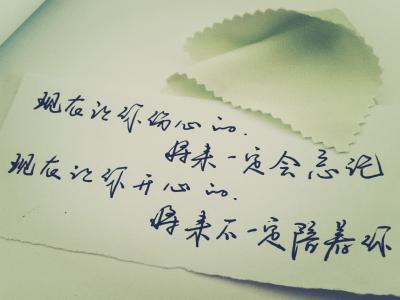 现在让你伤心的.
将来一定会忘记
现在让你开心的.
将来不一定陪着你